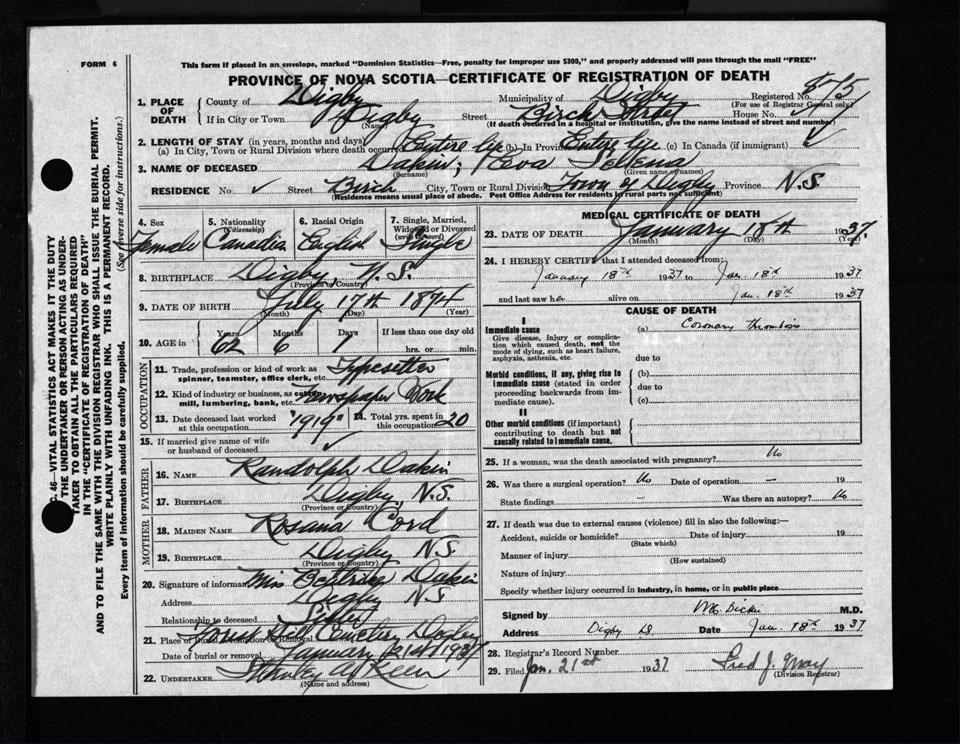 FORM 6
This form if placed in an envelope, marked "Dominion Statistics—Free, penalty for improper use $300," and properly addressed will pass through the mail "FREE"
PROVINCE OF NOVA SCOTIA—CERTIFICATE OF REGISTRATION OF DEATH
1. PLACE OF DEATH
County of Digby Municipality of Digby Registered No. 875
(For use of Registrar General only)
If in City or Town Digby Street Birch Street House No.
(Name) (If death occurred in a hospital or institution, give the name instead of street and number)
2. LENGTH OF STAY (in years, months and days)
(a) In City, Town or Rural Division where death occurred Entire life (b) In Province Entire life (c) In Canada (if immigrant) ✓
3. NAME OF DECEASED Dakin, Eva
(Surname) (Given name or names)
RESIDENCE No. ✓ Street Birch City, Town or Rural Division Town of Digby Province N.S.
(Residence means usual place of abode. Post Office Address for residents in rural parts not sufficient)
4. Sex Female
5. Nationality (Citizenship) Canadian
6. Racial Origin English
7. Single, Married, Widowed or Divorced (write the word) Single
8. BIRTHPLACE Digby, N.S.
(Province or Country)
9. DATE OF BIRTH July 17th 1874
(Month) (Day) (Year)
10. AGE in Years 62 Months 6 Days If less than one day old hrs. or min.
OCCUPATION
11. Trade, profession or kind of work as spinner, teamster, office clerk, etc. Typesetter
12. Kind of industry or business, as cotton mill, lumbering, bank, etc. Newspaper Work
13. Date deceased last worked at this occupation "1919"
14. Total yrs. spent in this occupation 20
15. If married give name of wife or husband of deceased ✓
FATHER
16. NAME Randolph Dakin
17. BIRTHPLACE Digby, N.S.
(Province or Country)
MOTHER
18. MAIDEN NAME Rosana Cord
19. BIRTHPLACE Digby N.S.
(Province or Country)
20. Signature of informant Miss Dakin
Address Digby N.S.
Relationship to deceased Sister
21. Place of Burial, Cremation or Removal Forest Hill Cemetery Digby
Date of burial or removal January 21st 1937
22. UNDERTAKER Stanley A.
(Name and address)
MEDICAL CERTIFICATE OF DEATH
23. DATE OF DEATH January 18th 1937
(Month) (Day) (Year)
24. I HEREBY CERTIFY that I attended deceased from:
January 18th 1937 to Jan. 18th 1937
and last saw her alive on Jan. 18th 1937
CAUSE OF DEATH
I
Immediate cause
Give disease, injury or complication which caused death, not the mode of dying, such as heart failure, asphyxia, asthenia, etc.
(a) Coronary Thrombosis
due to
Morbid conditions, if any, giving rise to immediate cause (stated in order proceeding backwards from immediate cause).
(b)
due to
(c)
II
Other morbid conditions (if important) contributing to death but not causally related to immediate cause.
25. If a woman, was the death associated with pregnancy? No
26. Was there a surgical operation? No Date of operation — 19
State findings — Was there an autopsy? No
27. If death was due to external causes (violence) fill in also the following:—
Accident, suicide or homicide? Date of injury 19
(State which)
Manner of injury
(How sustained)
Nature of injury
Specify whether injury occurred in industry, in home, or in public place
Signed by M.D.
Address Digby Date Jan. 18th 1937
28. Registrar's Record Number
29. Filed Jan. 21st 1937 Fred J.
(Division Registrar)
C. 46—VITAL STATISTICS ACT MAKES IT THE DUTY
THE UNDERTAKER OR PERSON ACTING AS UNDERTAKER TO OBTAIN ALL THE PARTICULARS REQUIRED
IN THE "CERTIFICATE OF REGISTRATION OF DEATH"
AND TO FILE THE SAME WITH THE DIVISION REGISTRAR WHO SHALL ISSUE THE BURIAL PERMIT.
WRITE PLAINLY WITH UNFADING INK. THIS IS A PERMANENT RECORD.
Every item of information should be carefully supplied. (See reverse side for instructions.)